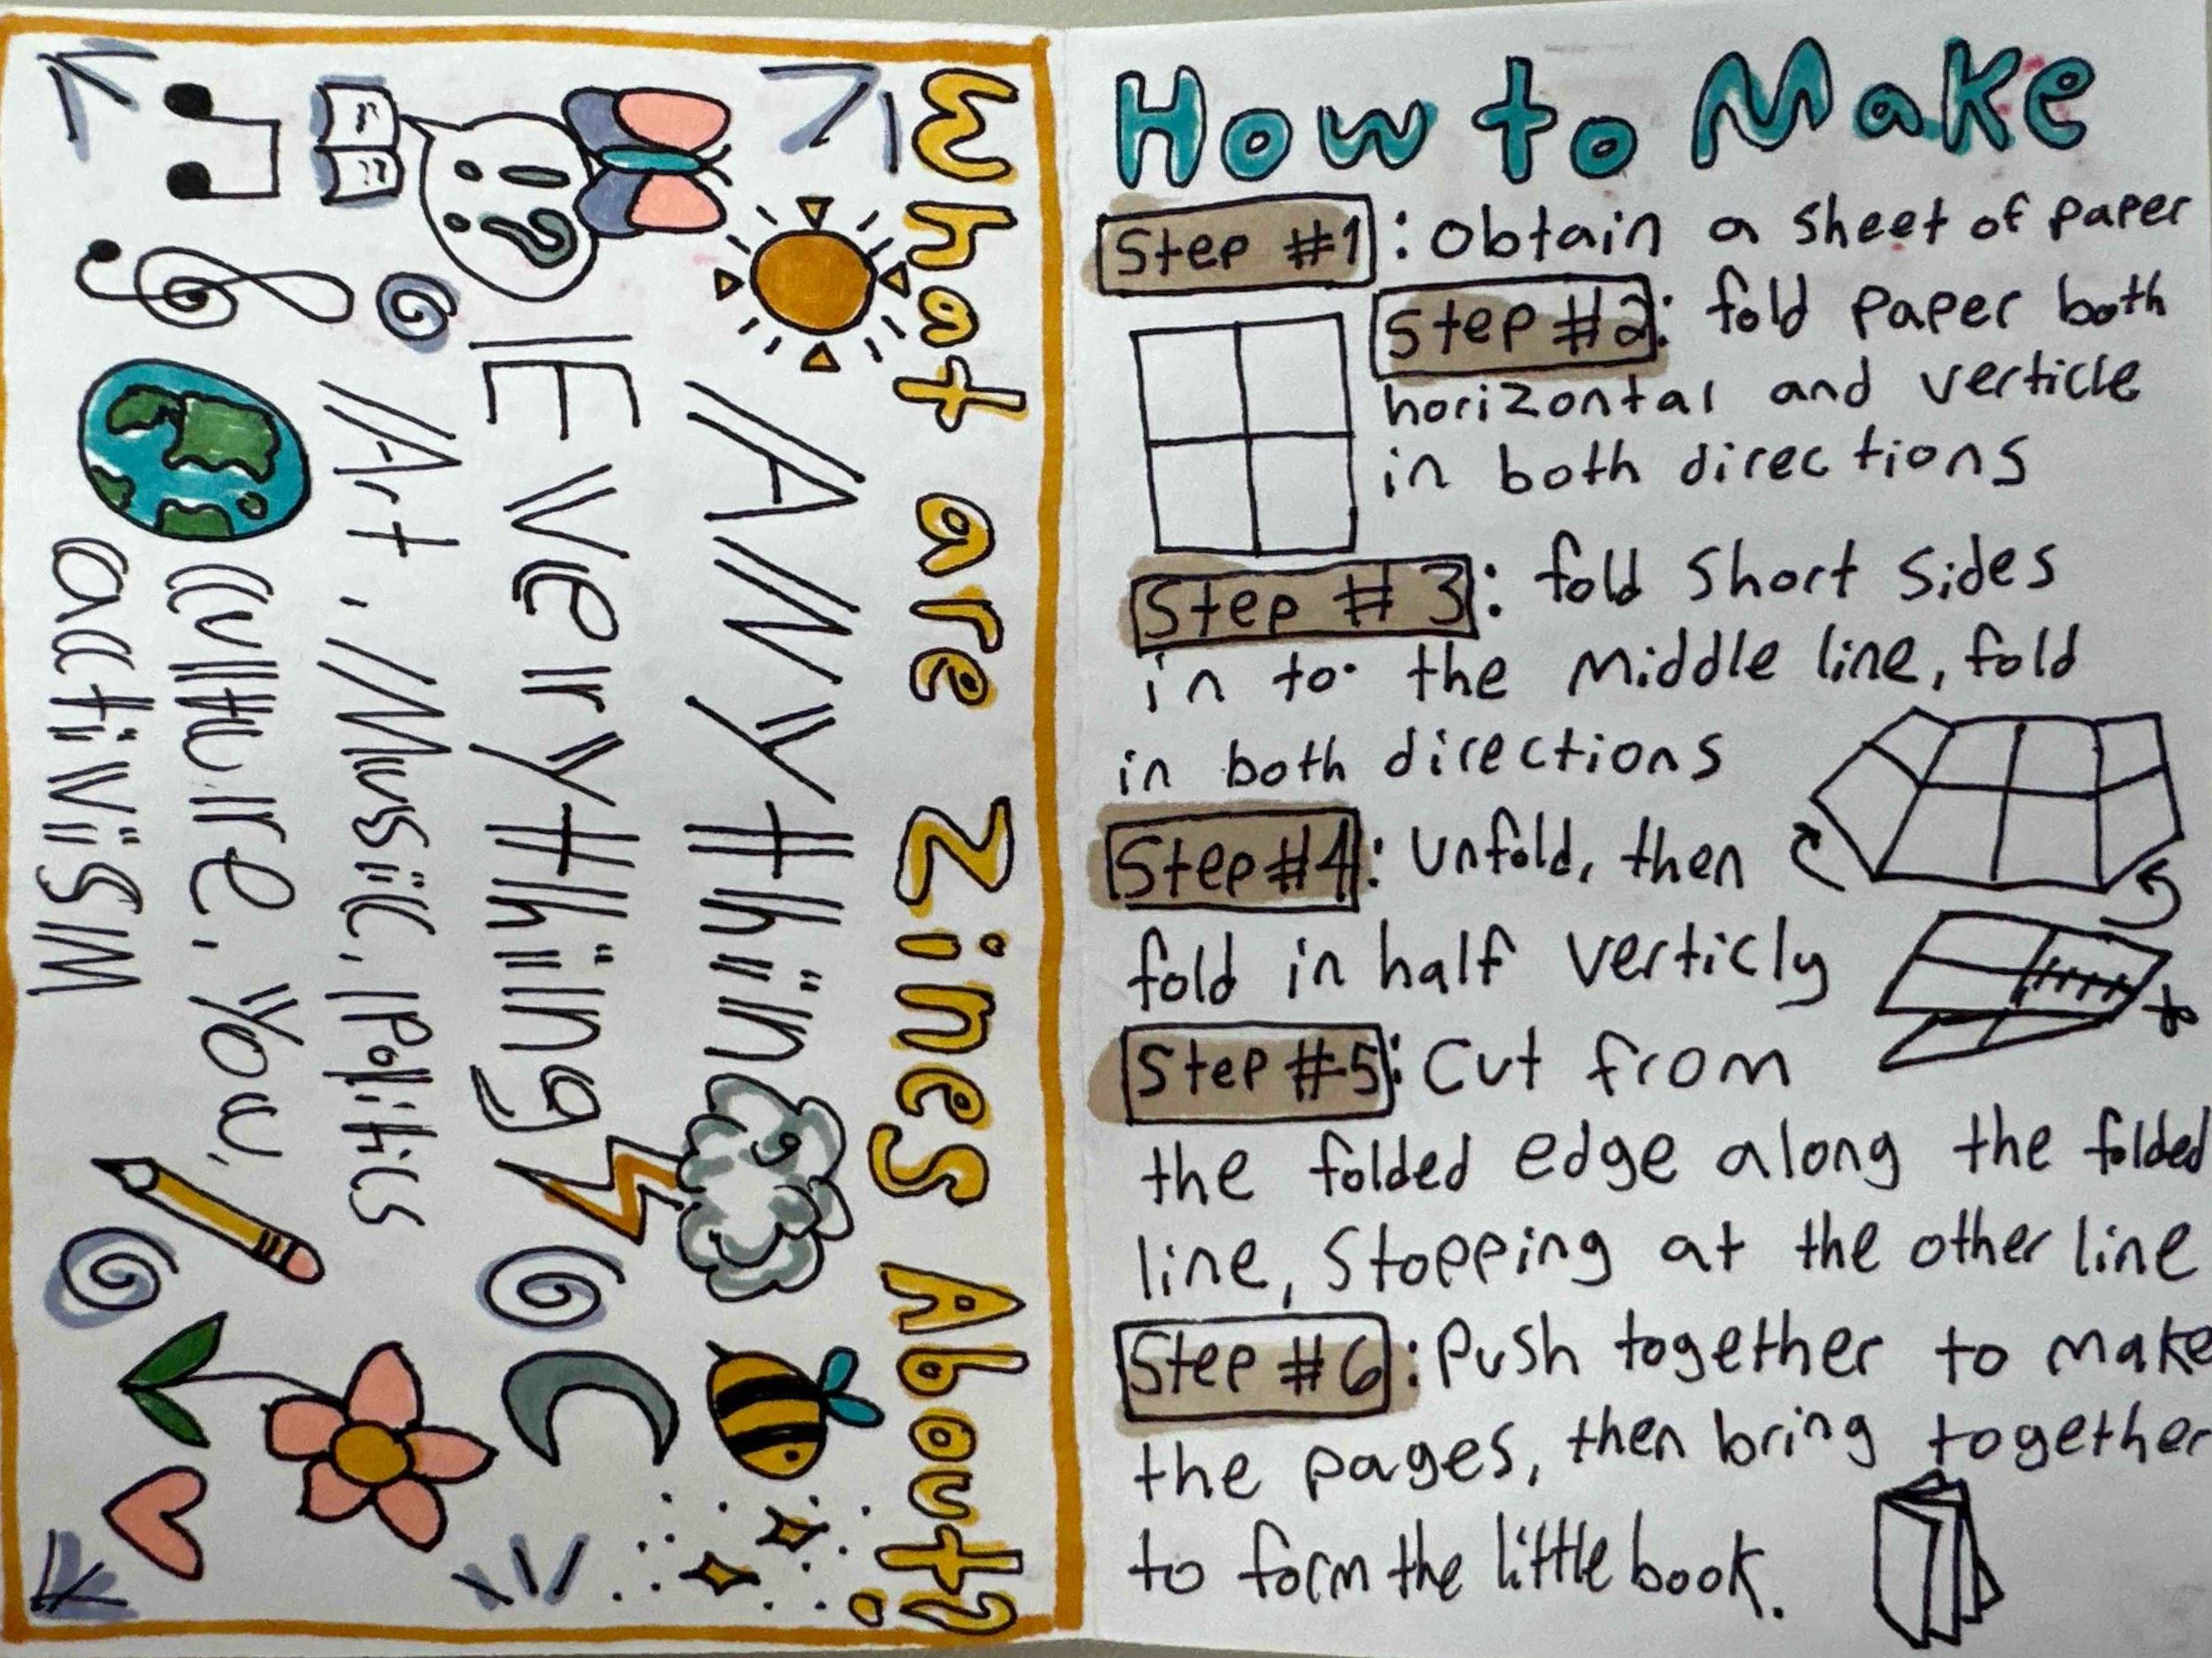 What are Zines About?
Anything
Everything
Art, Music, Politics
Culture, You,
activism
How to Make
Step #1: Obtain a sheet of paper
Step #2: fold paper both
horizontal and verticle
in both directions
Step #3: fold short sides
in to the middle line, fold
in both directions
Step #4: Unfold, then
fold in half verticly
Step #5: Cut from
the folded edge along the folded
line, stopping at the other line
Step #6: Push together to make
the pages, then bring together
to form the little book.